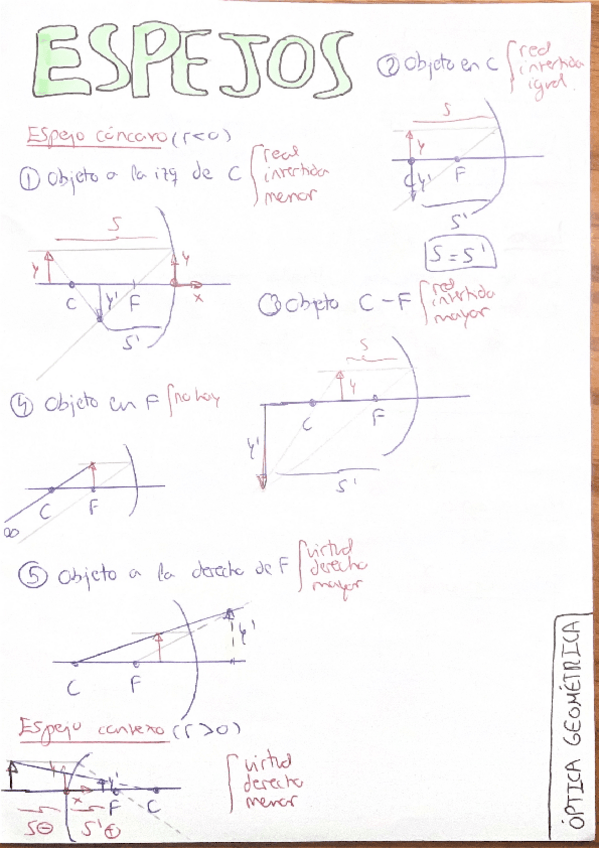 ESPEJOS
② Objeto en C
real
invertida
igual.
Espejo cóncavo (r<0)
① Objeto a la izq de C
real
invertida
menor
S
y
C
y'
F
S'
y
x
S
y
C
y'
F
S'
S = S'
③ Objeto C-F
real
invertida
mayor
S
y
C
F
y'
S'
④ Objeto en F
no hay
C
F
∞
⑤ Objeto a la derecha de F
virtual
derecha
mayor
C
F
y'
Espejo convexo (r>0)
virtud
derecha
menor
y
y'
x
F
C
S⊖
S'⊕
ÓPTICA GEOMÉTRICA